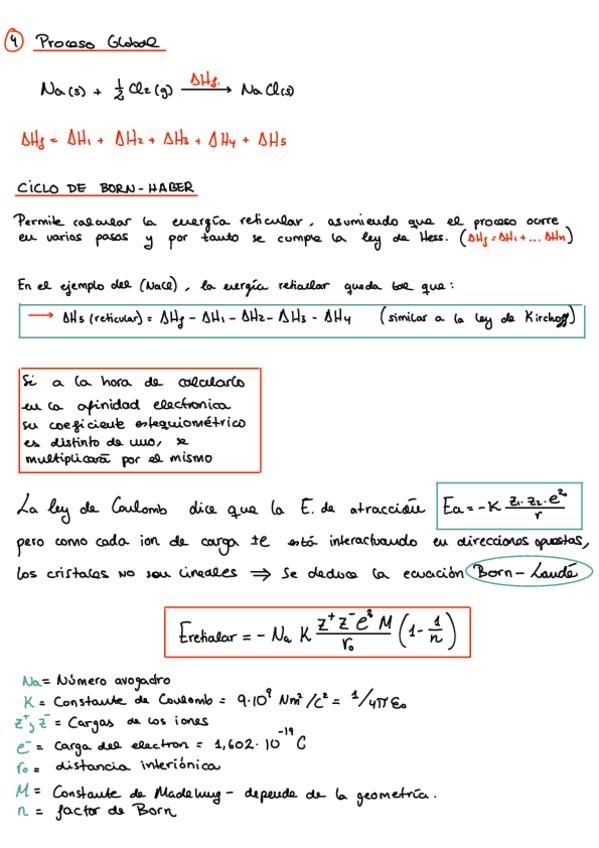 4 Proceso Global
Na (s) + 1/2 Cl2 (g) —ΔHf→ NaCl(s)
ΔHf = ΔH1 + ΔH2 + ΔH3 + ΔH4 + ΔH5
CICLO DE BORN-HABER
Permite calcular la energía reticular, asumiendo que el proceso ocurre
en varios pasos y por tanto se cumple la ley de Hess. (ΔHf = ΔH1 + ... ΔHn)
En el ejemplo del (NaCl), la energía reticular queda tal que:
→ ΔH5 (reticular) = ΔHf - ΔH1 - ΔH2 - ΔH3 - ΔH4 (similar a la ley de Kirchoff)
Si a la hora de calcularlo
en la afinidad electronica
su coeficiente estequiométrico
es distinto de uno, se
multiplicará por el mismo
La ley de Coulomb dice que la E. de atracción Ea = -K z1·z2·e²/r
pero como cada ion de carga ±e está interactuando en direcciones opuestas,
los cristales NO son lineales ⇒ Se deduce la ecuación Born-Landé
Ereticular = - Na K z⁺z⁻e² M/r₀ (1 - 1/n)
Na = Número avogadro
K = Constante de Coulomb = 9·10⁹ Nm²/C² = 1/4πε₀
z⁺ y z⁻ = Cargas de los iones
e⁻ = carga del electron = 1,602·10⁻¹⁹ C
r₀ = distancia interiónica
M = Constante de Madelung - depende de la geometría.
n = factor de Born